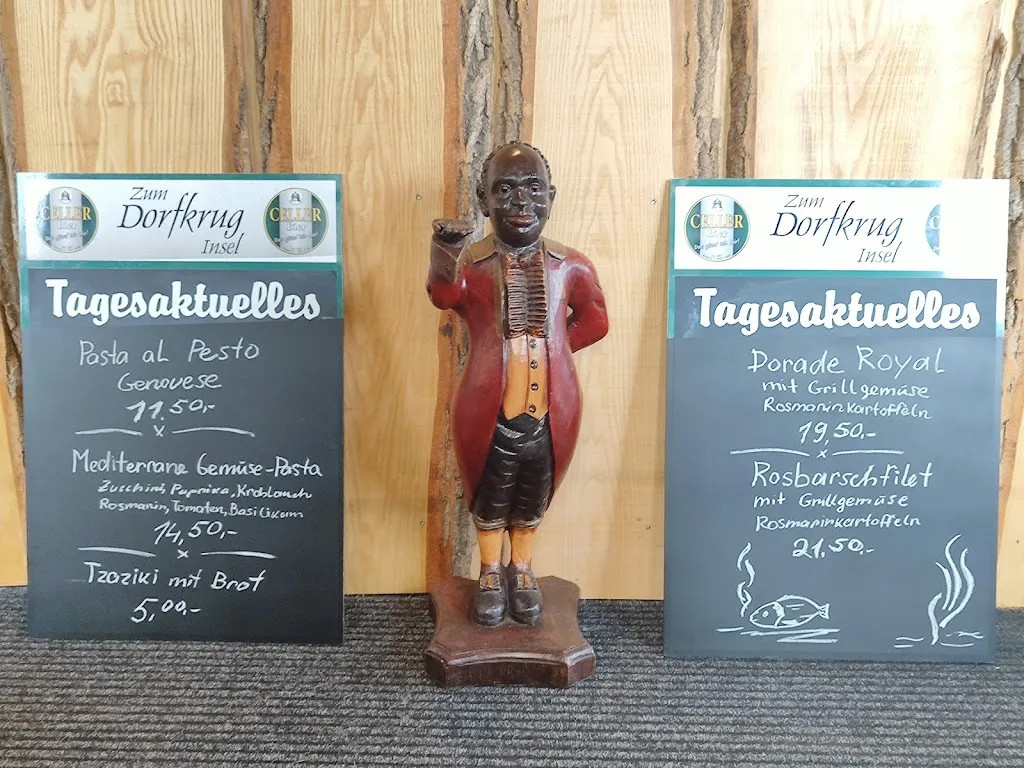 Zum
Dorfkrug
Insel
CELLER
CELLER
Tagesaktuelles
Pasta al Pesto
Genovese
11.50,-
x
Mediterrane Gemüse-Pasta
Zucchini, Paprika, Knoblauch
Rosmarin, Tomaten, Basilikum
14,50,-
x
Tzaziki mit Brot
5,00,-
Zum
Dorfkrug
Insel
CELLER
Tagesaktuelles
Dorade Royal
mit Grillgemüse
Rosmarinkartoffeln
19,50,-
x
Rosbarschfilet
mit Grillgemüse
Rosmarinkartoffeln
21,50,-